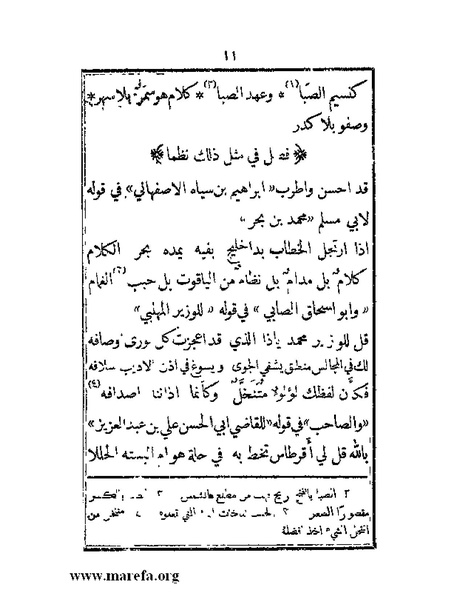 ١١
كنسيم الصبا (١) * وعهد الصبا (٢) * كلام هو سمر بلا سهر *
وصفو بلا كدر
﴿ فصل في مثل ذلك نظما ﴾
قد احسن واطرب « ابراهيم بن سياه الاصفهاني » في قوله
لابي مسلم « محمد بن بحر »
اذا ارتجل الخطاب بدا خليج بفيه يمده بحر الكلام
كلام بل مدام بل نظام من الياقوت بل حبب (٣) الغمام
« وابو اسحاق الصابي » في قوله « للوزير المهلبي »
قل للوزير محمد ياذا الذي قد اعجزت كل الورى وصافه
لك في المجالس منطق يشفي الجوى ويسوغ في اذن الاديب سلافه
فكأن لفظك لؤلؤ متنخل وكأنما اذاننا اصدافه (٤)
« والصاحب » في قوله « للقاضي ابي الحسن علي بن عبد العزيز »
بالله قل لي أقرطاس تخط به في حلة هو ام البسته الحللا
١ الصبا بالفتح ريح تهب من مطلع الشمس ٢
مقصورا الصغر ٣ ٤ متنخل من
انتخل الشيء اخذ افضله
www.marefa.org